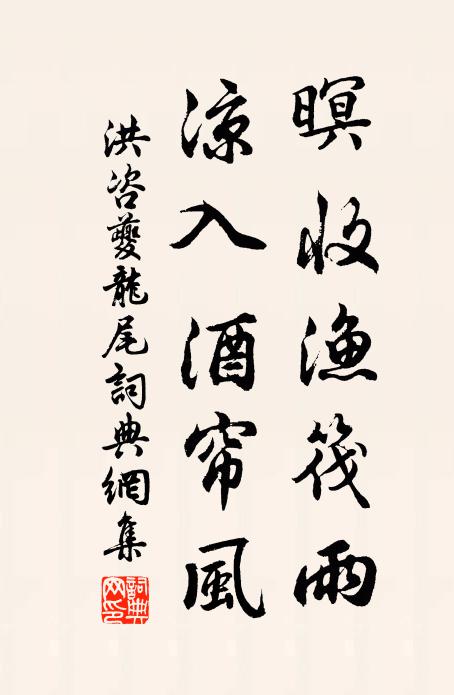 暝收漁筏雨
涼入酒帘風
洪咨夔龍尾詞典網集
詞典網印